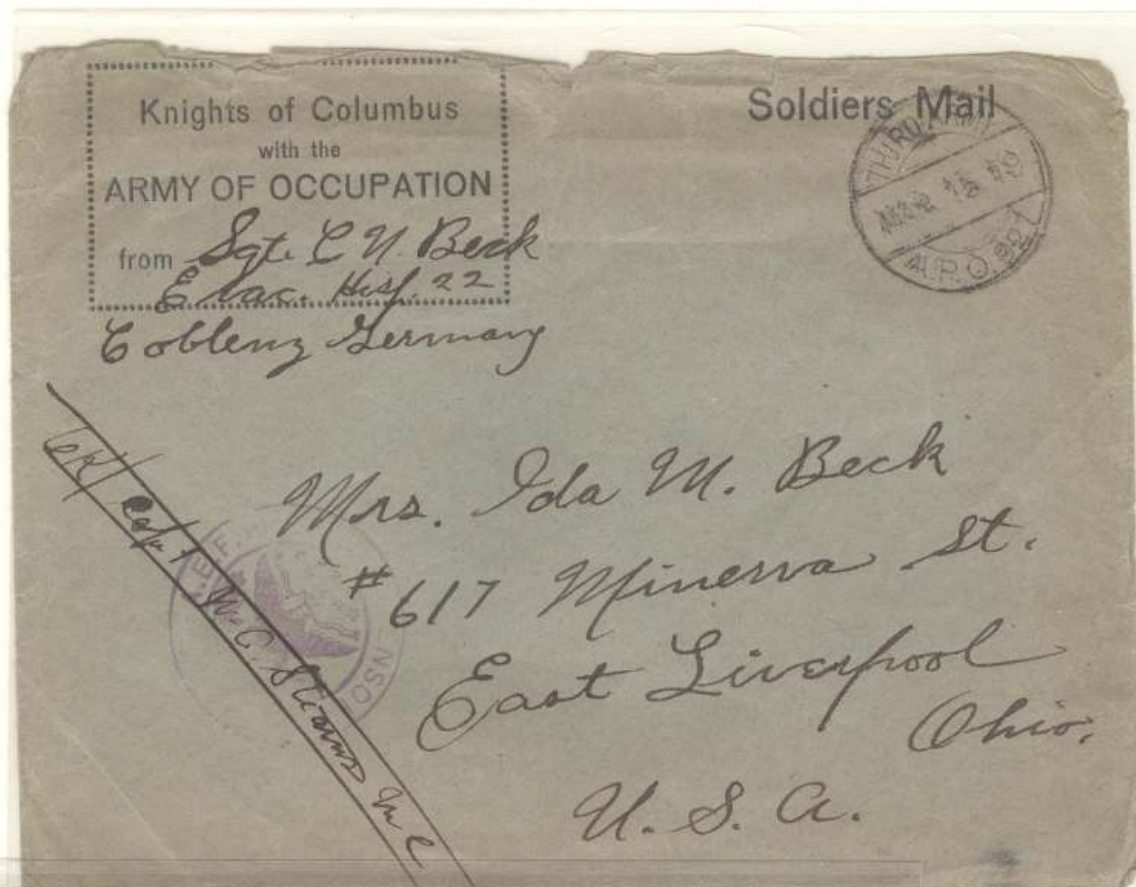 Knights of Columbus
with the
ARMY OF OCCUPATION
from Sgt. C N. Beck
Evac. Hosp. 22
Coblenz Germany
Soldiers Mail
THIRD ARMY
A.P.O. 927
OK/ Capt W. C. Stearns M C
A.E.F.
Mrs. Ida M. Beck
#617 Minerva St.
East Liverpool
Ohio,
U. S. A.